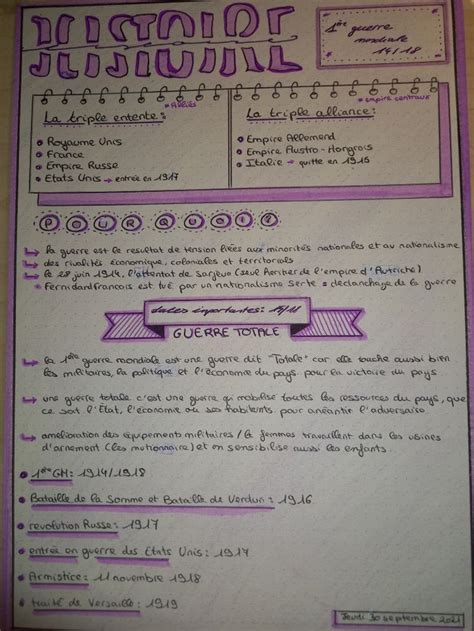 HISTOIRE
1ère guerre
mondiale
14/18
* Alliés
* empire centraux
La triple entente :
La triple alliance :
Royaume Unis
France
Empire Russe
Etats Unis → entrée en 1917
Empire Allemand
Empire Austro - Hongrois
Italie → quitte en 1915
POURQUOI?
La guerre est le resultat de tension liées aux minorités nationales et au nationalisme
des rivalités économique, coloniales et territorials
le 28 juin 1914, l'attentat de Sarjevo (seul heritier de l'empire d'Autriche)
Fernidandfrancois est tué par un nationalisme serte : declanchage de la guerre
dates importantes : 14/18
GUERRE TOTALE
la 1ère guerre mondiale est une guerre dit "Totale" car elle touche aussi bien
les militaires, la politique et l'économie du pays pour la victoire du pays
une guerre totale c'est une guerre qui mobilise toutes les ressources du pays, que
ce soit l'État, l'économie ou ses habitents pour anéantir l'adversaire
amelioration des équipements militaires / la femmes travaillent dans les usines
d'armement (les mutionnaire) et on sensibilise aussi les enfants.
1ère GM : 1914/1918
Bataille de la Somme et Bataille de Verdun : 1916
revolution Russe : 1917
entrée en guerre des Etats Unis : 1917
Armistice : 11 novembre 1918
traité de Versaille : 1919
Jeudi 30 septembre 2021